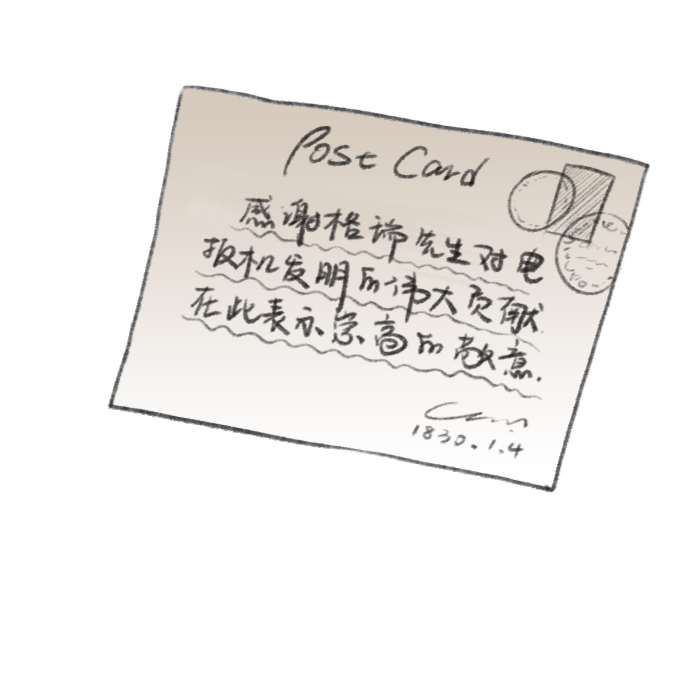 Post Card
感谢格谛先生对电
报机发明的伟大贡献
在此表示崇高的敬意.
1830.1.4